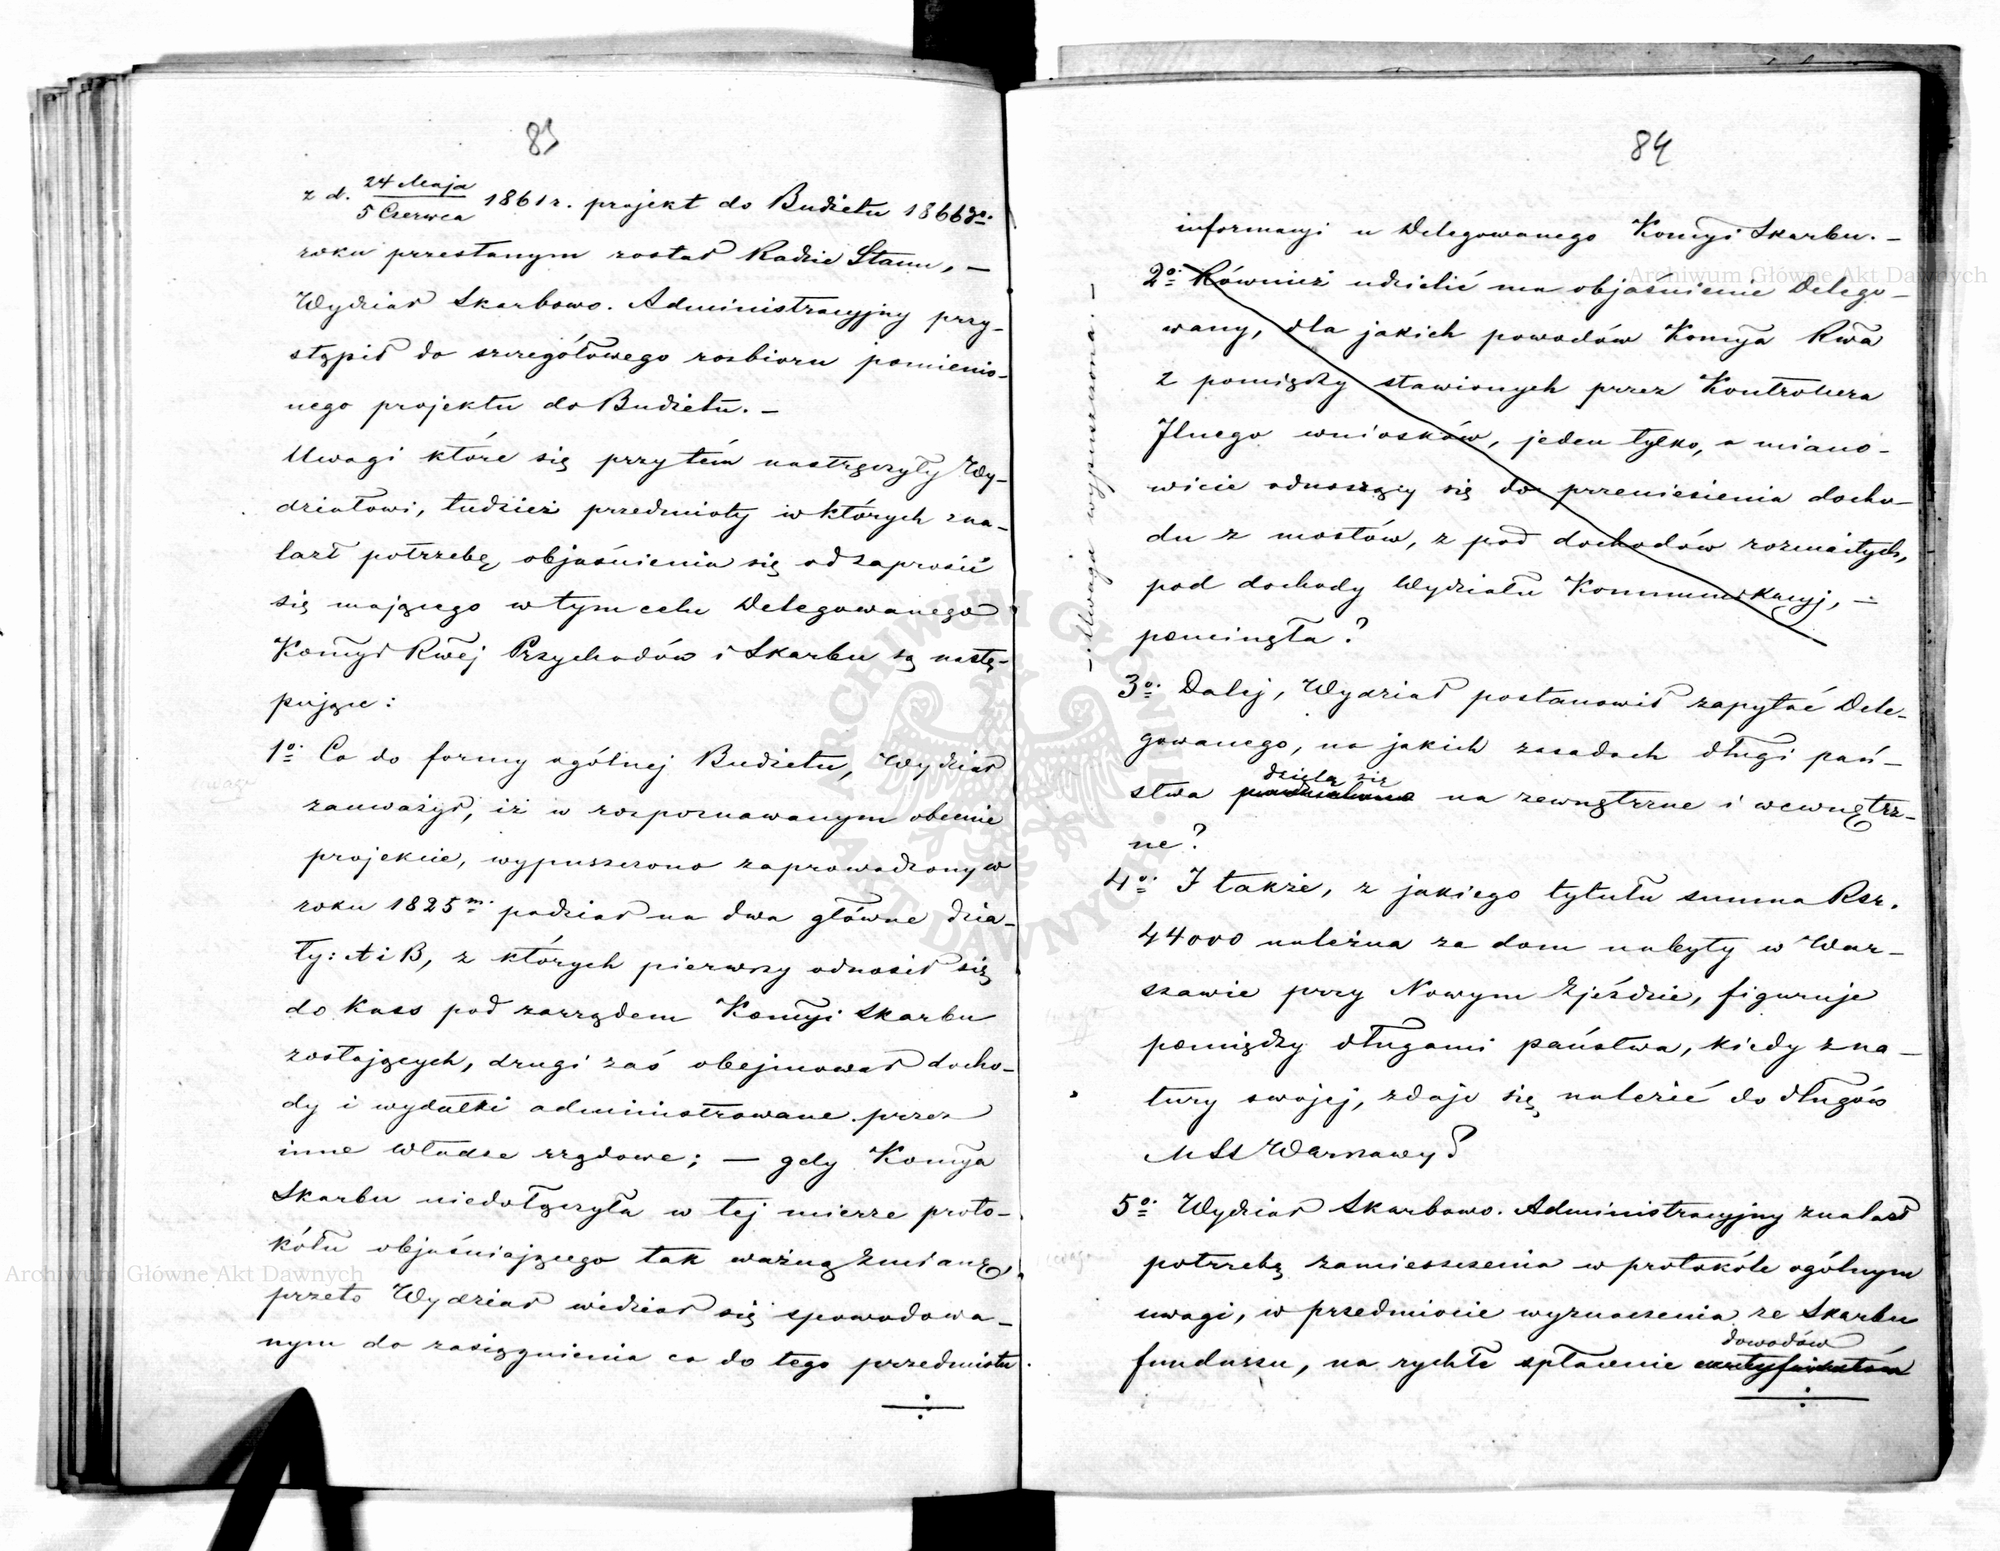 83
z d. 24 Maja / 5 Czerwca 1861 r. projekt do Budżetu 1866go.
roku przesłanym został Radzie Stanu, —
Wydział Skarbowo. Administracyjny przy-
stąpił do szczegółowego rozbioru pomienio-
nego projektu do Budżetu. —
Uwagi które się przytém nastręczyły Wy-
działowi, tudzież przedmioty w których zna-
lazł potrzebę objaśnienia się od zaprosić
się mającego w tym celu Delegowanego
Komyi Rwéj Przychodów i Skarbu są nastę-
pujące:
1o. Co do formy ogólnej Budżetu, Wydział
zauważył, iż w rozpoznawanym obecnie
projekcie, wypuszczono zaprowadzony w
roku 1825m. podział na dwa główne dzia-
ły: A i B, z których pierwszy odnosił się
do Kass pod zarządem Komyi Skarbu
zostających, drugi zaś obejmował docho-
dy i wydatki administrowane przez
inne władze rządowe; — gdy Komya
Skarbu niedołączyła w tej mierze proto-
kółu objaśniającego tak ważną zmianę,
przeto Wydział widział się spowodowa-
nym do zasięgnienia co do tego przedmiotu
84
informacyi u Delegowanego Komyi Skarbu. —
2o. Również udzielić ma objaśnienie Delego-
wany, dla jakich powodów Komya Rwa
z pomiędzy stawionych przez Kontrollera
Jlnego wniosków, jeden tylko, a miano-
wicie odnoszący się do przeniesienia docho-
du z mostów, z pod dochodów rozmaitych,
pod dochody Wydziału Kommunikacyj, —
pominęła?
— Uwaga wypuszczona. —
3o. Dalej, Wydział postanowił zapytać Dele-
gowanego, na jakich zasadach długi pań-
dzielą się
stwa podzielono na zewnętrzne i wewnętrz-
ne?
4o. I także, z jakiego tytułu summa Rsr.
44000 należna za dom nabyty w War-
szawie przy Nowym Zjeździe, figuruje
pomiędzy długami państwa, kiedy z na-
tury swojej, zdaje się należeć do długów
M St Warszawy?
5o. Wydział Skarbowo. Administracyjny znalazł
potrzebę zamieszczenia w protokóle ogólnym
uwagi, w przedmiocie wyznaczenia ze Skarbu
dowodów
funduszu, na rychłe spłacenie certyfikatów
Archiwum Główne Akt Dawnych
Archiwum Główne Akt Dawnych
ARCHIWUM GŁÓWNE AKT DAWNYCH